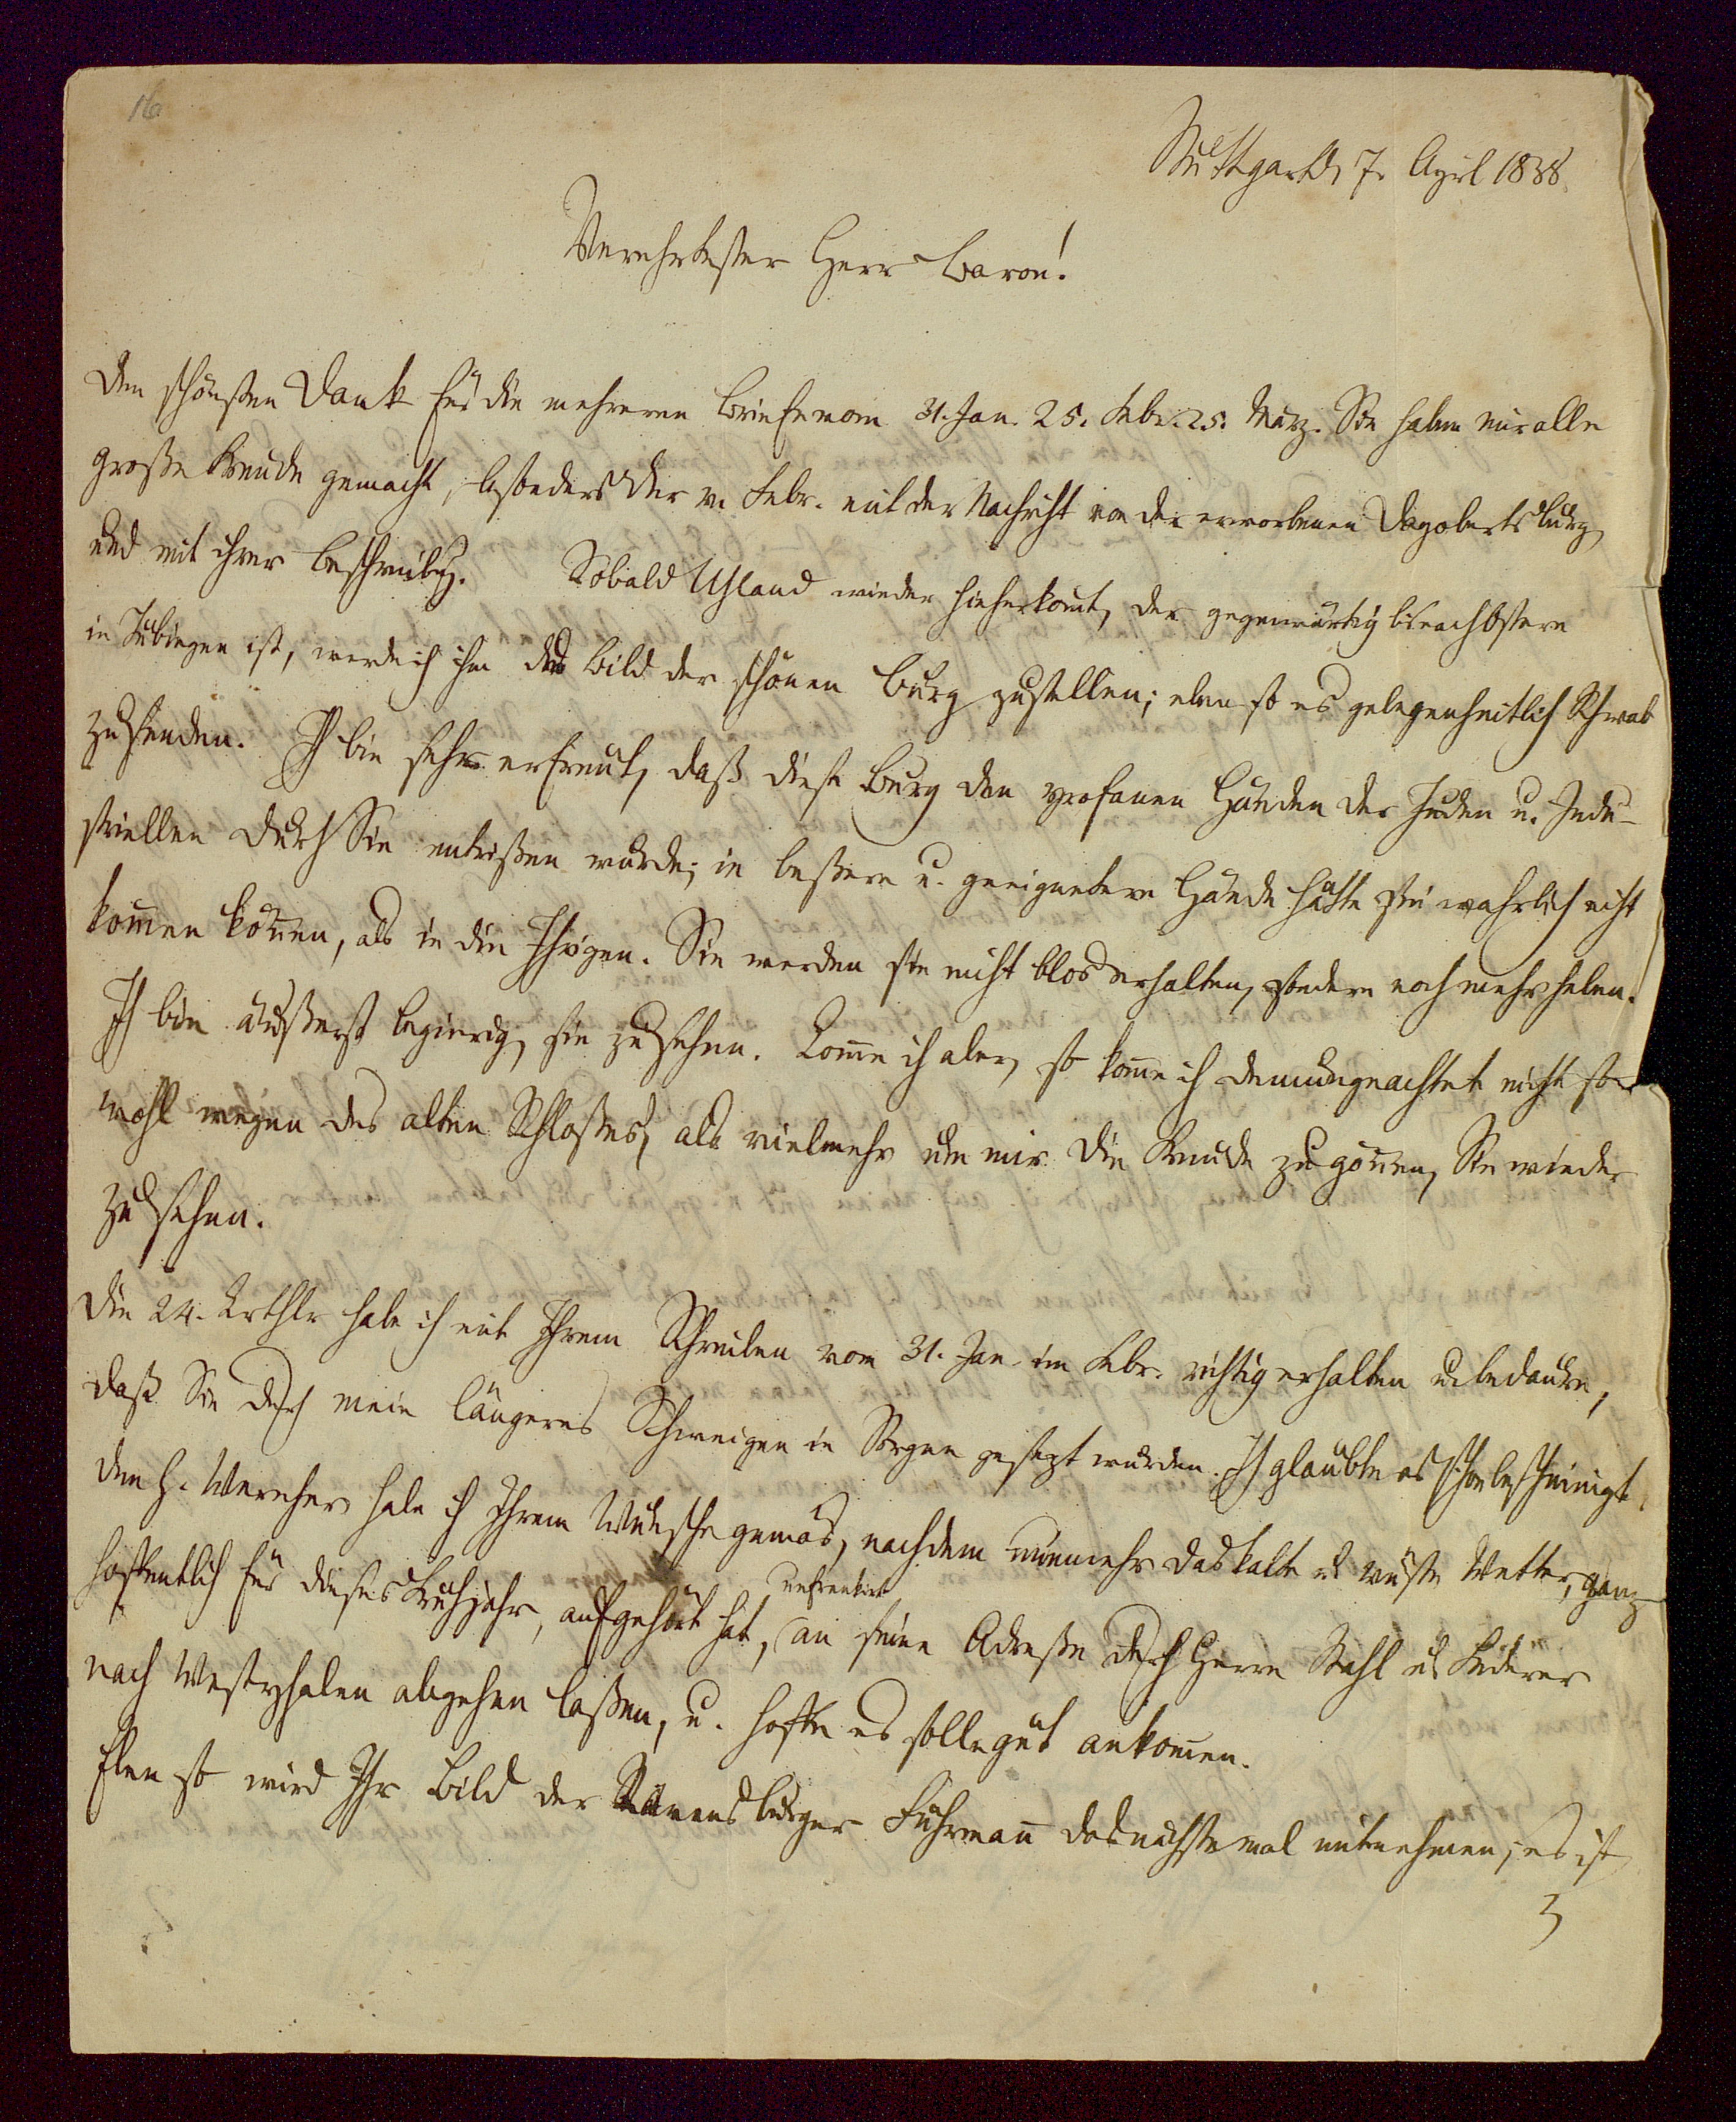 16
Stuttgard, 7. April 1838.
Verehrtester Herr Baron!
Den schönsten Dank für die mehreren Briefe vom 31. Jan. 25. Febr. 25. März. Sie haben mir alle
große Freude gemacht, besonders der v. Febr. mit der Nachricht von der erworbenen Dagobertsburg,
und mit ihrer Beschreibg. Sobald Uhland wieder hieherkomt, der gegenwärtig bis nach Ostern
in Tübingen ist, werde ich ihm das Bild der schönen Burg zustellen; eben so es gelegenheitlich Schwab
zusenden. Ich bin sehr erfreut, daß diese Burg den profanen Händen der Juden u. Indu-
striellen durch Sie entrißen wurde; in beßere u. geeignetere Hände hätte sie wahrlich nicht
kommen können, als in die Ihrigen. Sie werden sie nicht blos erhalten, sondern noch mehr heben.
Ich bin äußerst begierig, sie zu sehen. Komme ich aber, so komme ich demungeachtet nicht so
wohl wegen des alten Schloßes, als vielmehr um mir die Freude zu gönnen, Sie wieder
zu sehen.
Die 24. Krthlr habe ich mit Ihrem Schreiben vom 31. Jan. im Febr. richtig erhalten u. bedaure,
daß Sie durch mein längeres Schweigen in Sorgen gesezt wurden. Ich glaubte es schon bescheinigt.
Den h. Wereher habe ich Ihrem Wunsche gemäs, nachdem nunmehr das kalte u. wüste Wetter, ganz
hoffentlich für dieses Frühjahr, aufgehört hat, unfrankirt an seine Adreße durch Herrn Stahl u. Federer
nach Westphalen abgehen laßen, u. hoffe es solle gut ankommen.
Eben so wird Ihr Bild der Ravensburger Fuhrmann das nächste mal mitnehmen; es ist